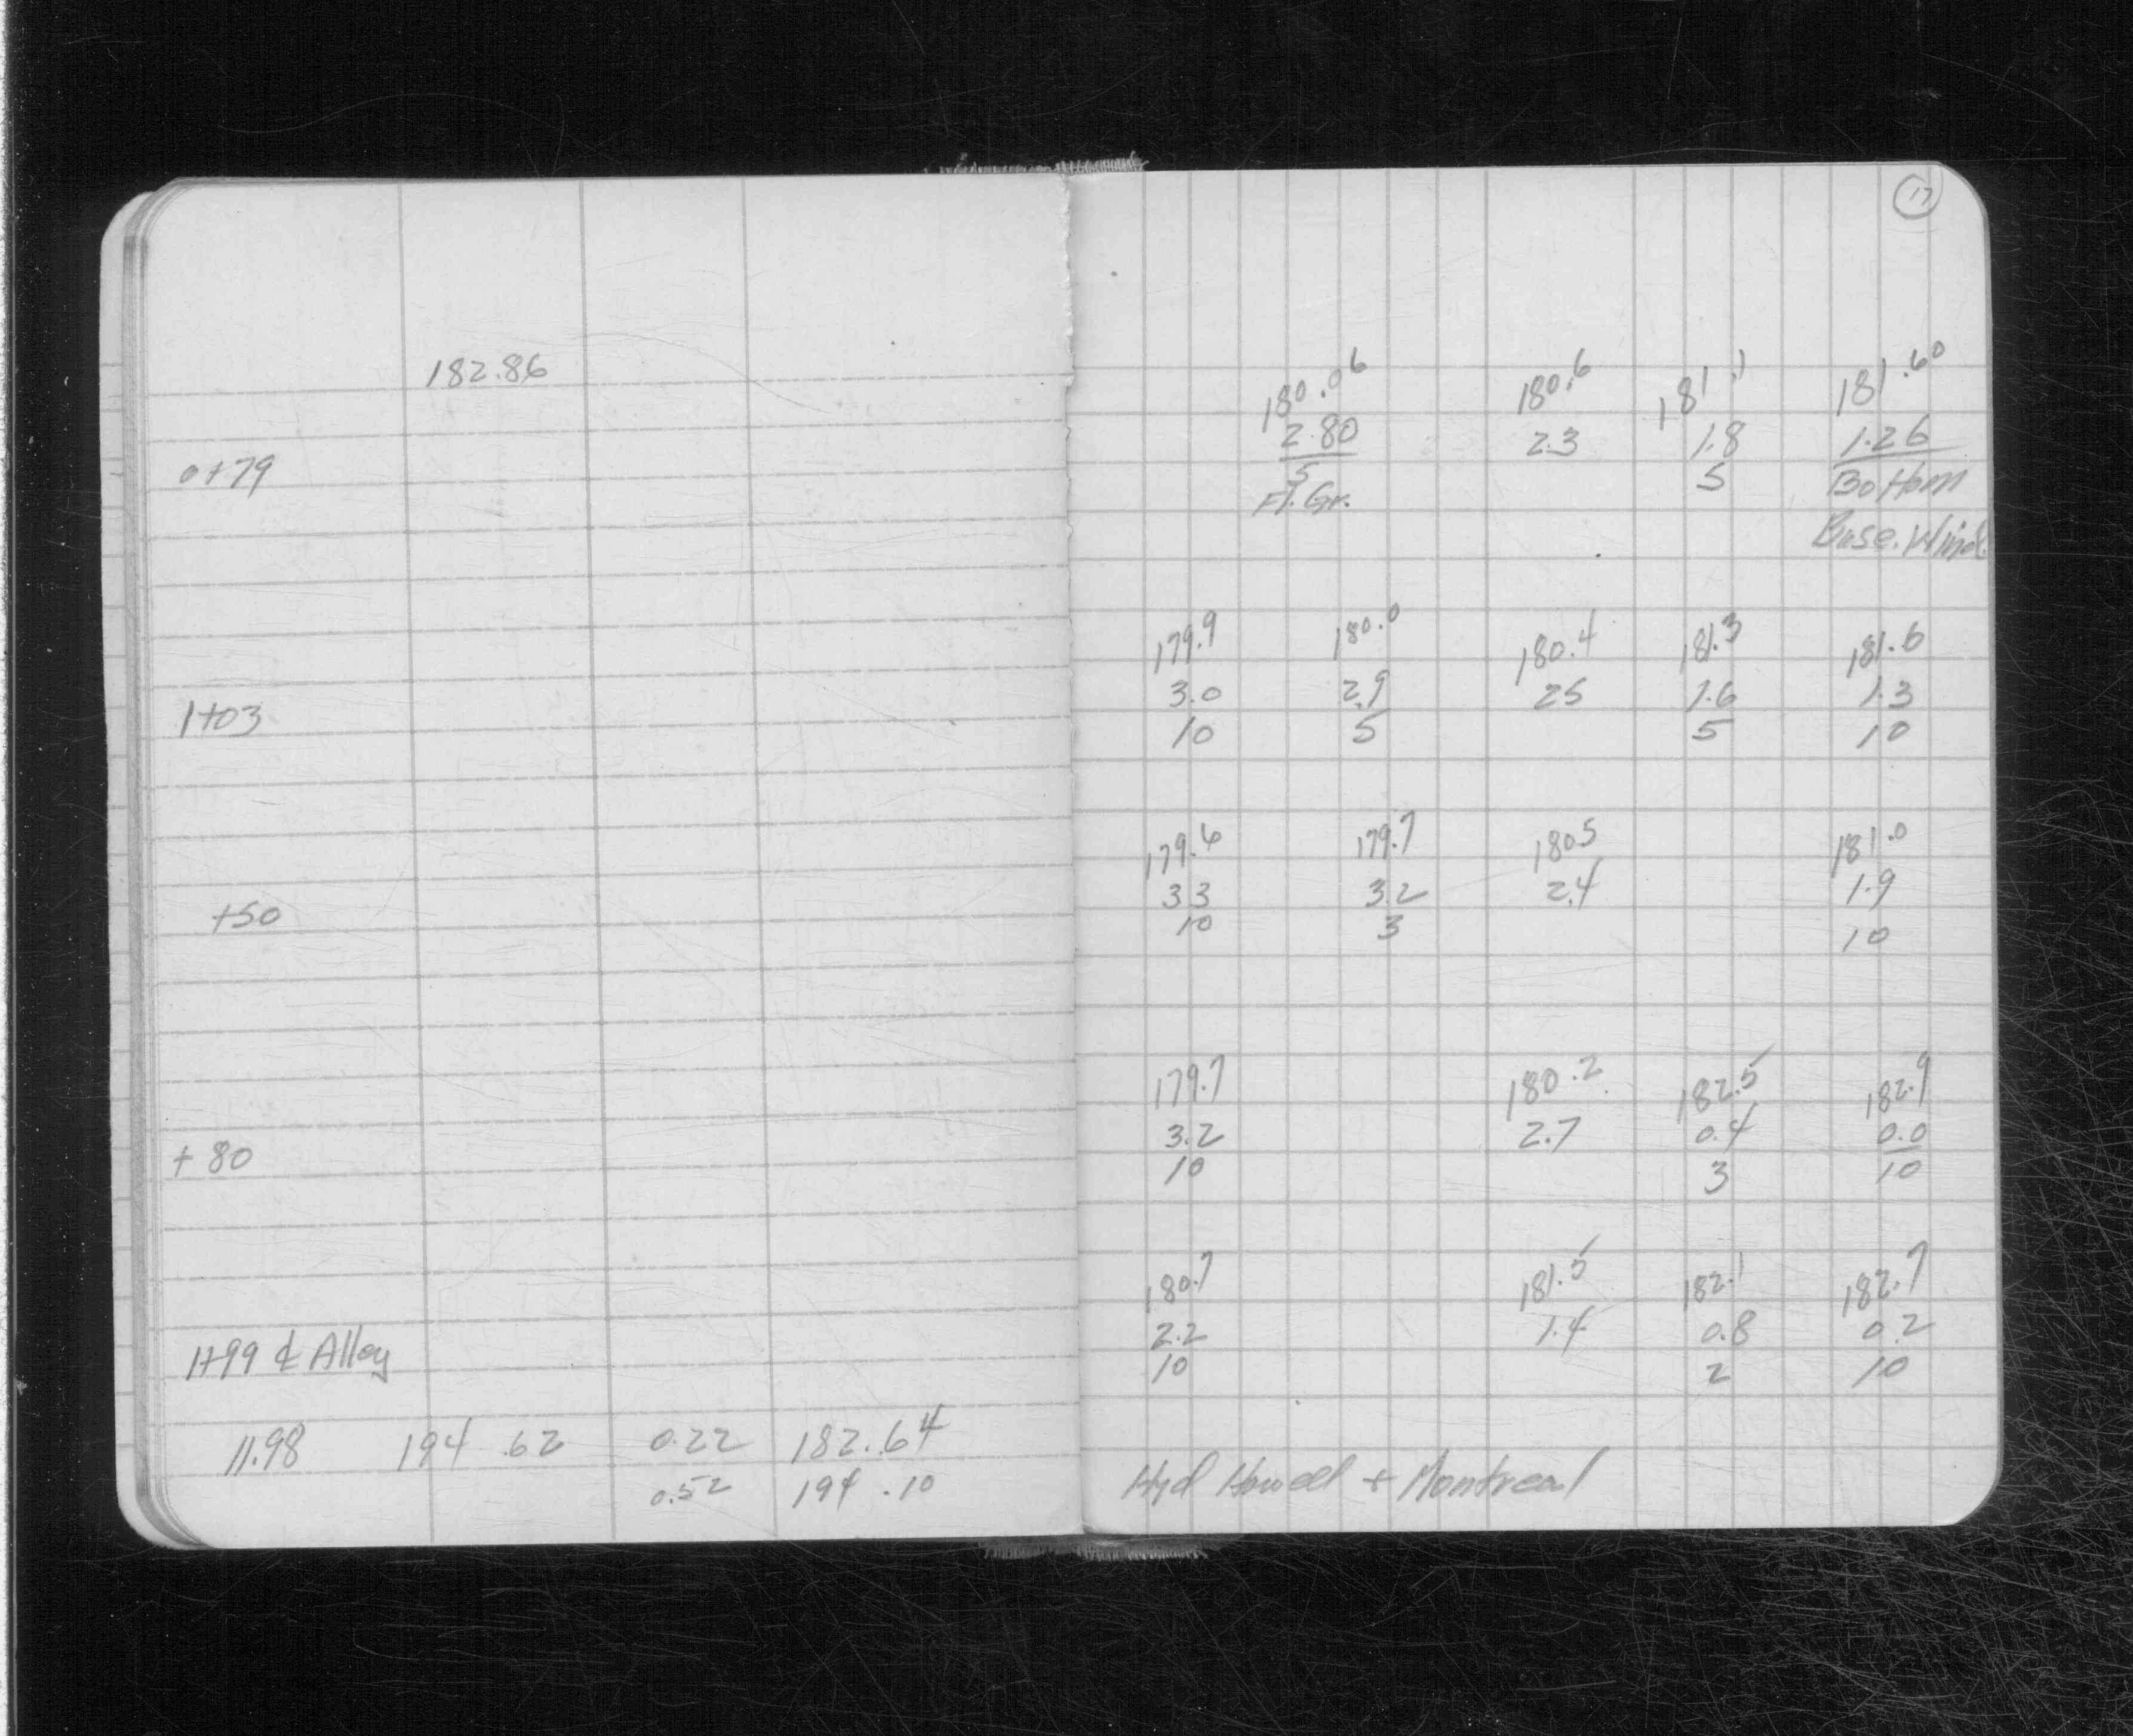 182.86
0+79
1+03
+50
+80
1+99 ℄ Alley
11.98 194.62 0.22 182.64
0.52 194.10
17
180.06 180.6 181.1 181.60
2.80 2.3 1.8 1.26
5 5 Bottom
Fl. Gr. Base. Wind.
179.9 180.0 180.4 181.3 181.6
3.0 2.9 2.5 1.6 1.3
10 5 5 10
179.6 179.7 180.5 181.0
3.3 3.2 2.4 1.9
10 3 10
179.7 180.2 182.5 182.9
3.2 2.7 0.4 0.0
10 3 10
180.7 181.5 182.1 182.7
2.2 1.4 0.8 0.2
10 2 10
Hyd Howell + Montreal